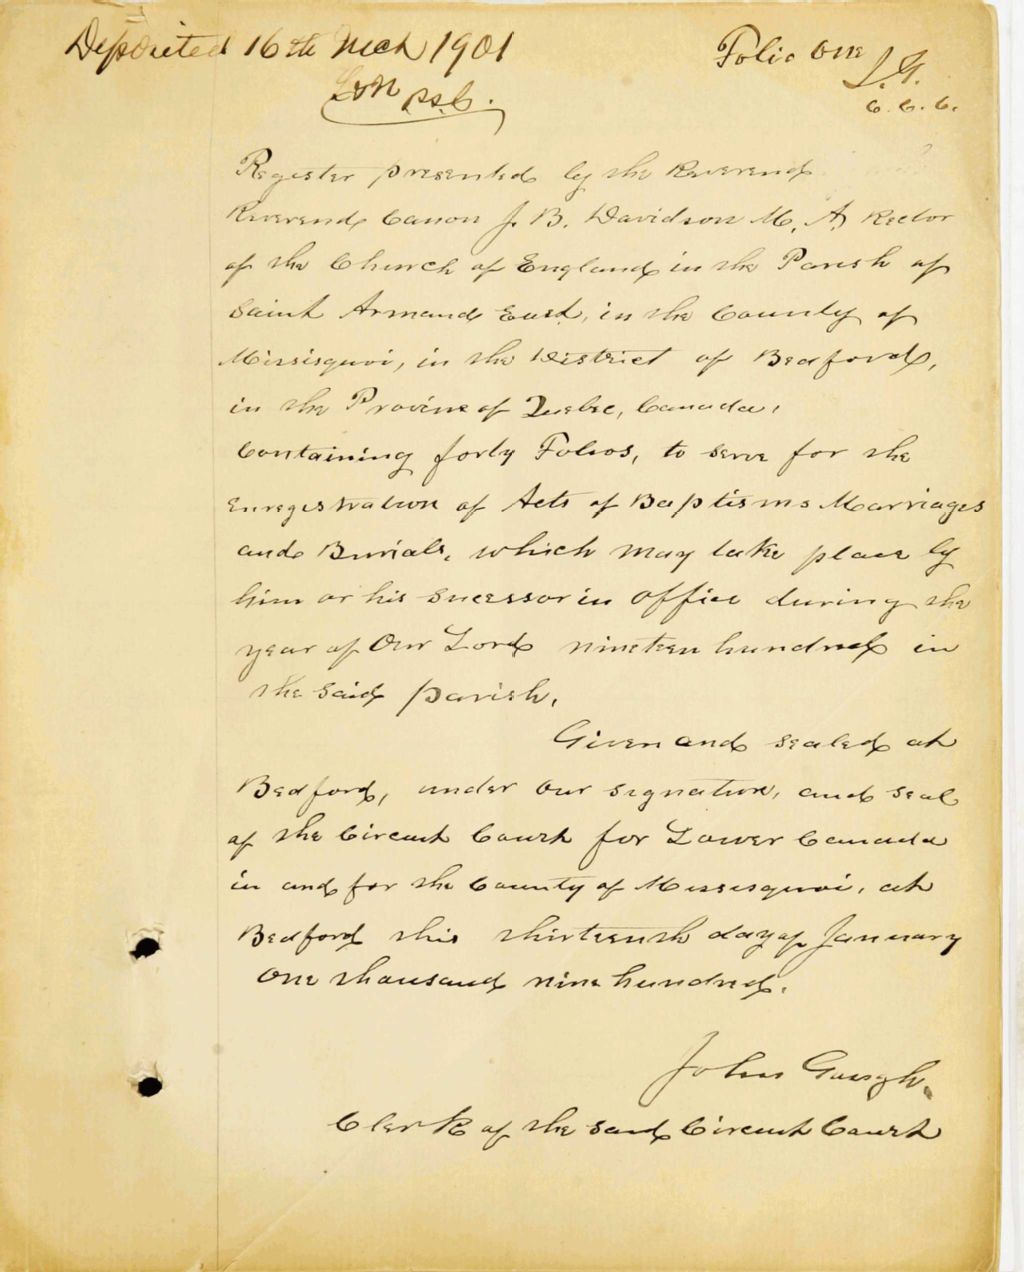 Deposited 16th Mch 1901
Folio One
J. G.
C. C. C.
Register presented by the Reverend
Reverend Canon J. B. Davidson M. A. Rector
of the Church of England in the Parish of
Saint Armand East, in the County of
Missisquoi, in the District of Bedford,
in the Province of Quebec, Canada,
Containing forty Folios, to serve for the
Enregistration of Acts of Baptisms Marriages
and Burials, which may take place by
him or his sucessor in office during the
year of Our Lord nineteen hundred in
the said parish.
Given and sealed at
Bedford, under our signature, and seal
of the Circuit Court for Lower Canada
in and for the County of Missisquoi, at
Bedford this thirteenth day of January
One thousand nine hundred.
John Gough.
Clerk of the said Circuit Court